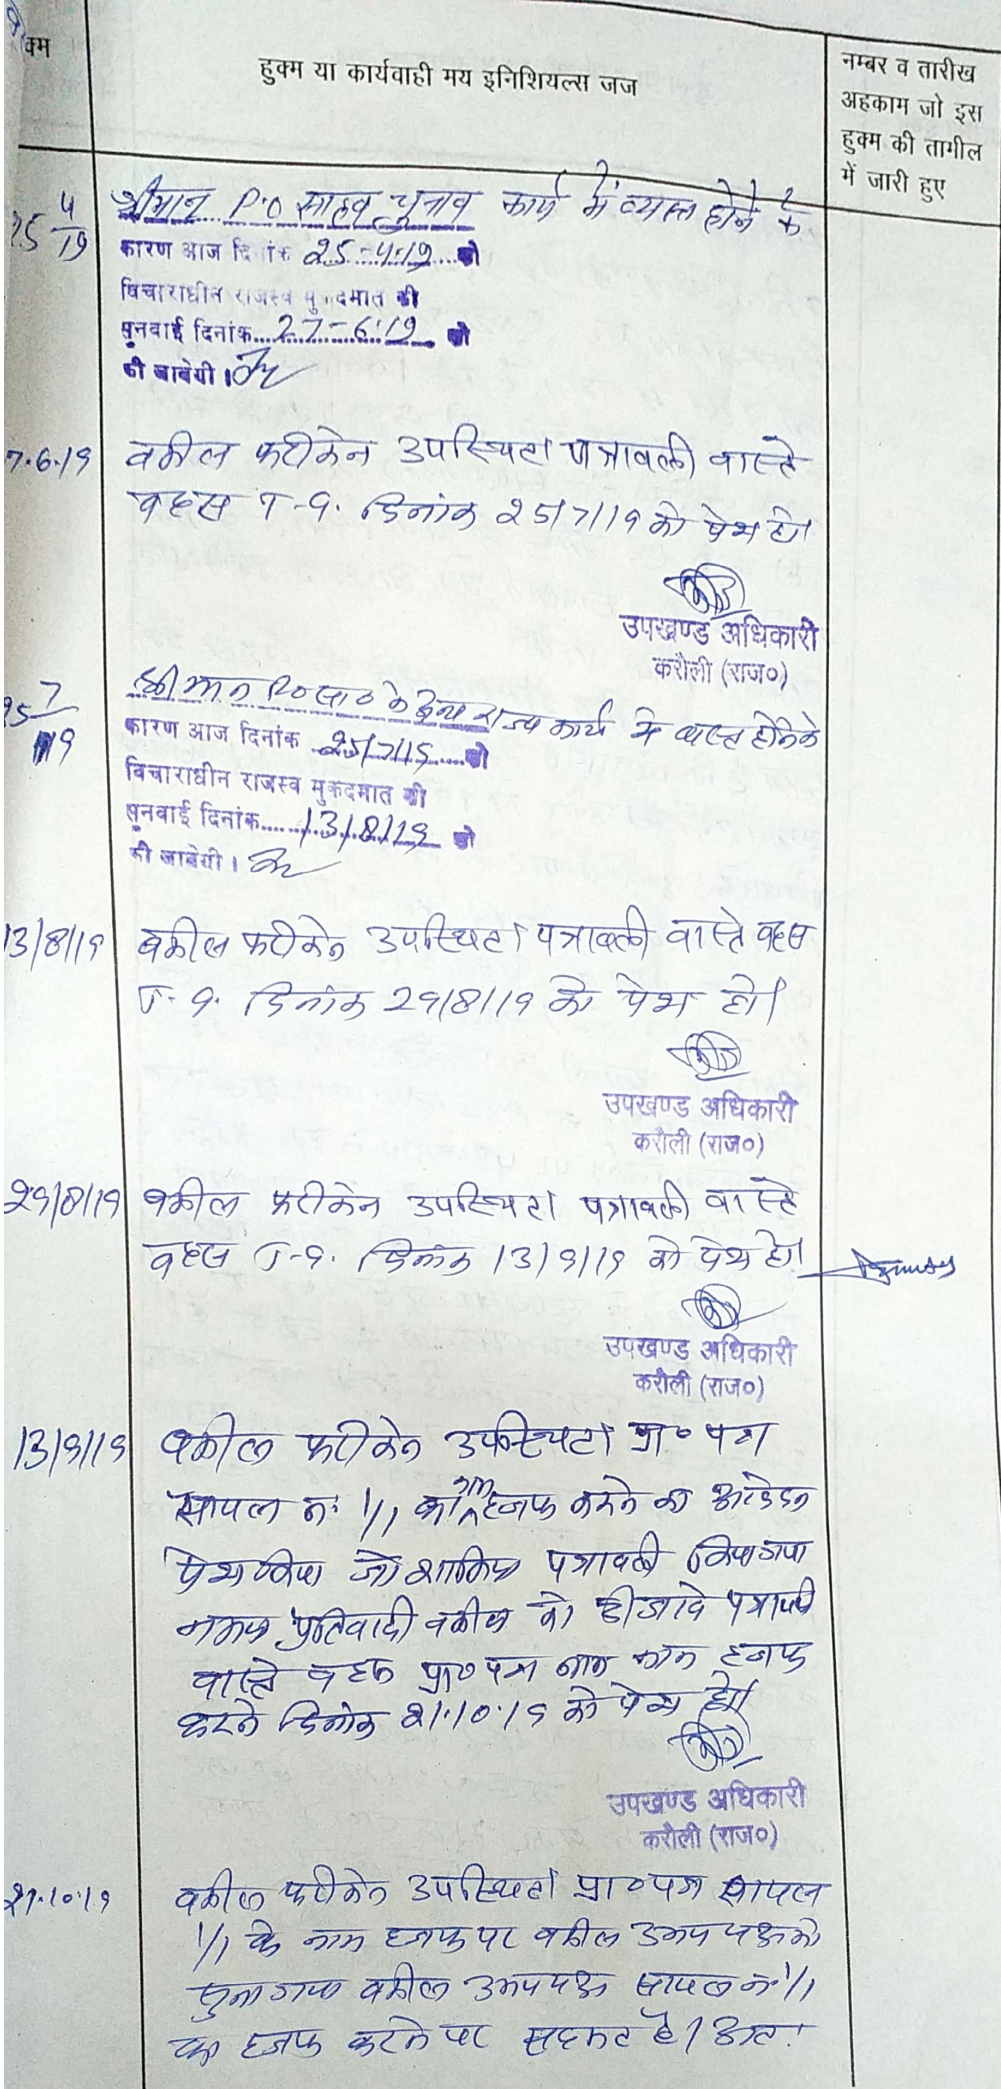 क्म
हुक्म या कार्यवाही मय इनिशियल्स जज
नम्बर व तारीख
अहकाम जो इस
हुक्म की तामील
में जारी हुए
25 4/19
श्रीमान P.O साहब चुनाव कार्य में व्यस्त होने के
कारण आज दिनांक 25-4-19 को
विचाराधीन राजस्व मुकदमात की
सुनवाई दिनांक....27-6-19 को
की जावेगी।
7.6.19
वकील फरीकेन उपस्थित। पत्रावली वास्ते
बहस T-9. दिनांक 25/7/19 को पेश हो।
उपखण्ड अधिकारी
करौली (राज०)
25 7/19
श्रीमान P.O सा० के अन्य राज्य कार्य में व्यस्त होने के
कारण आज दिनांक 25/7/19 को
विचाराधीन राजस्व मुकदमात की
सुनवाई दिनांक....13/8/19 को
की जावेगी।
13/8/19
वकील फरीकेन उपस्थित। पत्रावली वास्ते बहस
T-9. दिनांक 29/8/19 को पेश हो।
उपखण्ड अधिकारी
करौली (राज०)
29/8/19
वकील फरीकेन उपस्थित। पत्रावली वास्ते
बहस T-9. दिनांक 13/9/19 को पेश हो।
उपखण्ड अधिकारी
करौली (राज०)
13/9/19
वकील फरीकेन उपस्थित। प्रा० पत्र
सायल नं. 1/1 का नाम हजफ करने का आवेदन
पेश किया जो शामिल पत्रावली किया गया
नकल प्रतिवादी वकील को दी जावे पत्रावली
वास्ते बहस प्रा० पत्र नाम हजफ
करने दिनांक 21.10.19 को पेश हो।
उपखण्ड अधिकारी
करौली (राज०)
21.10.19
वकील फरीकेन उपस्थित। प्रा० पत्र सायल
1/1 के नाम हजफ पर वकील उभय पक्ष को
सुना गया वकील उभय पक्ष सायल नं. 1/1
का हजफ करने पर सहमत है। अतः